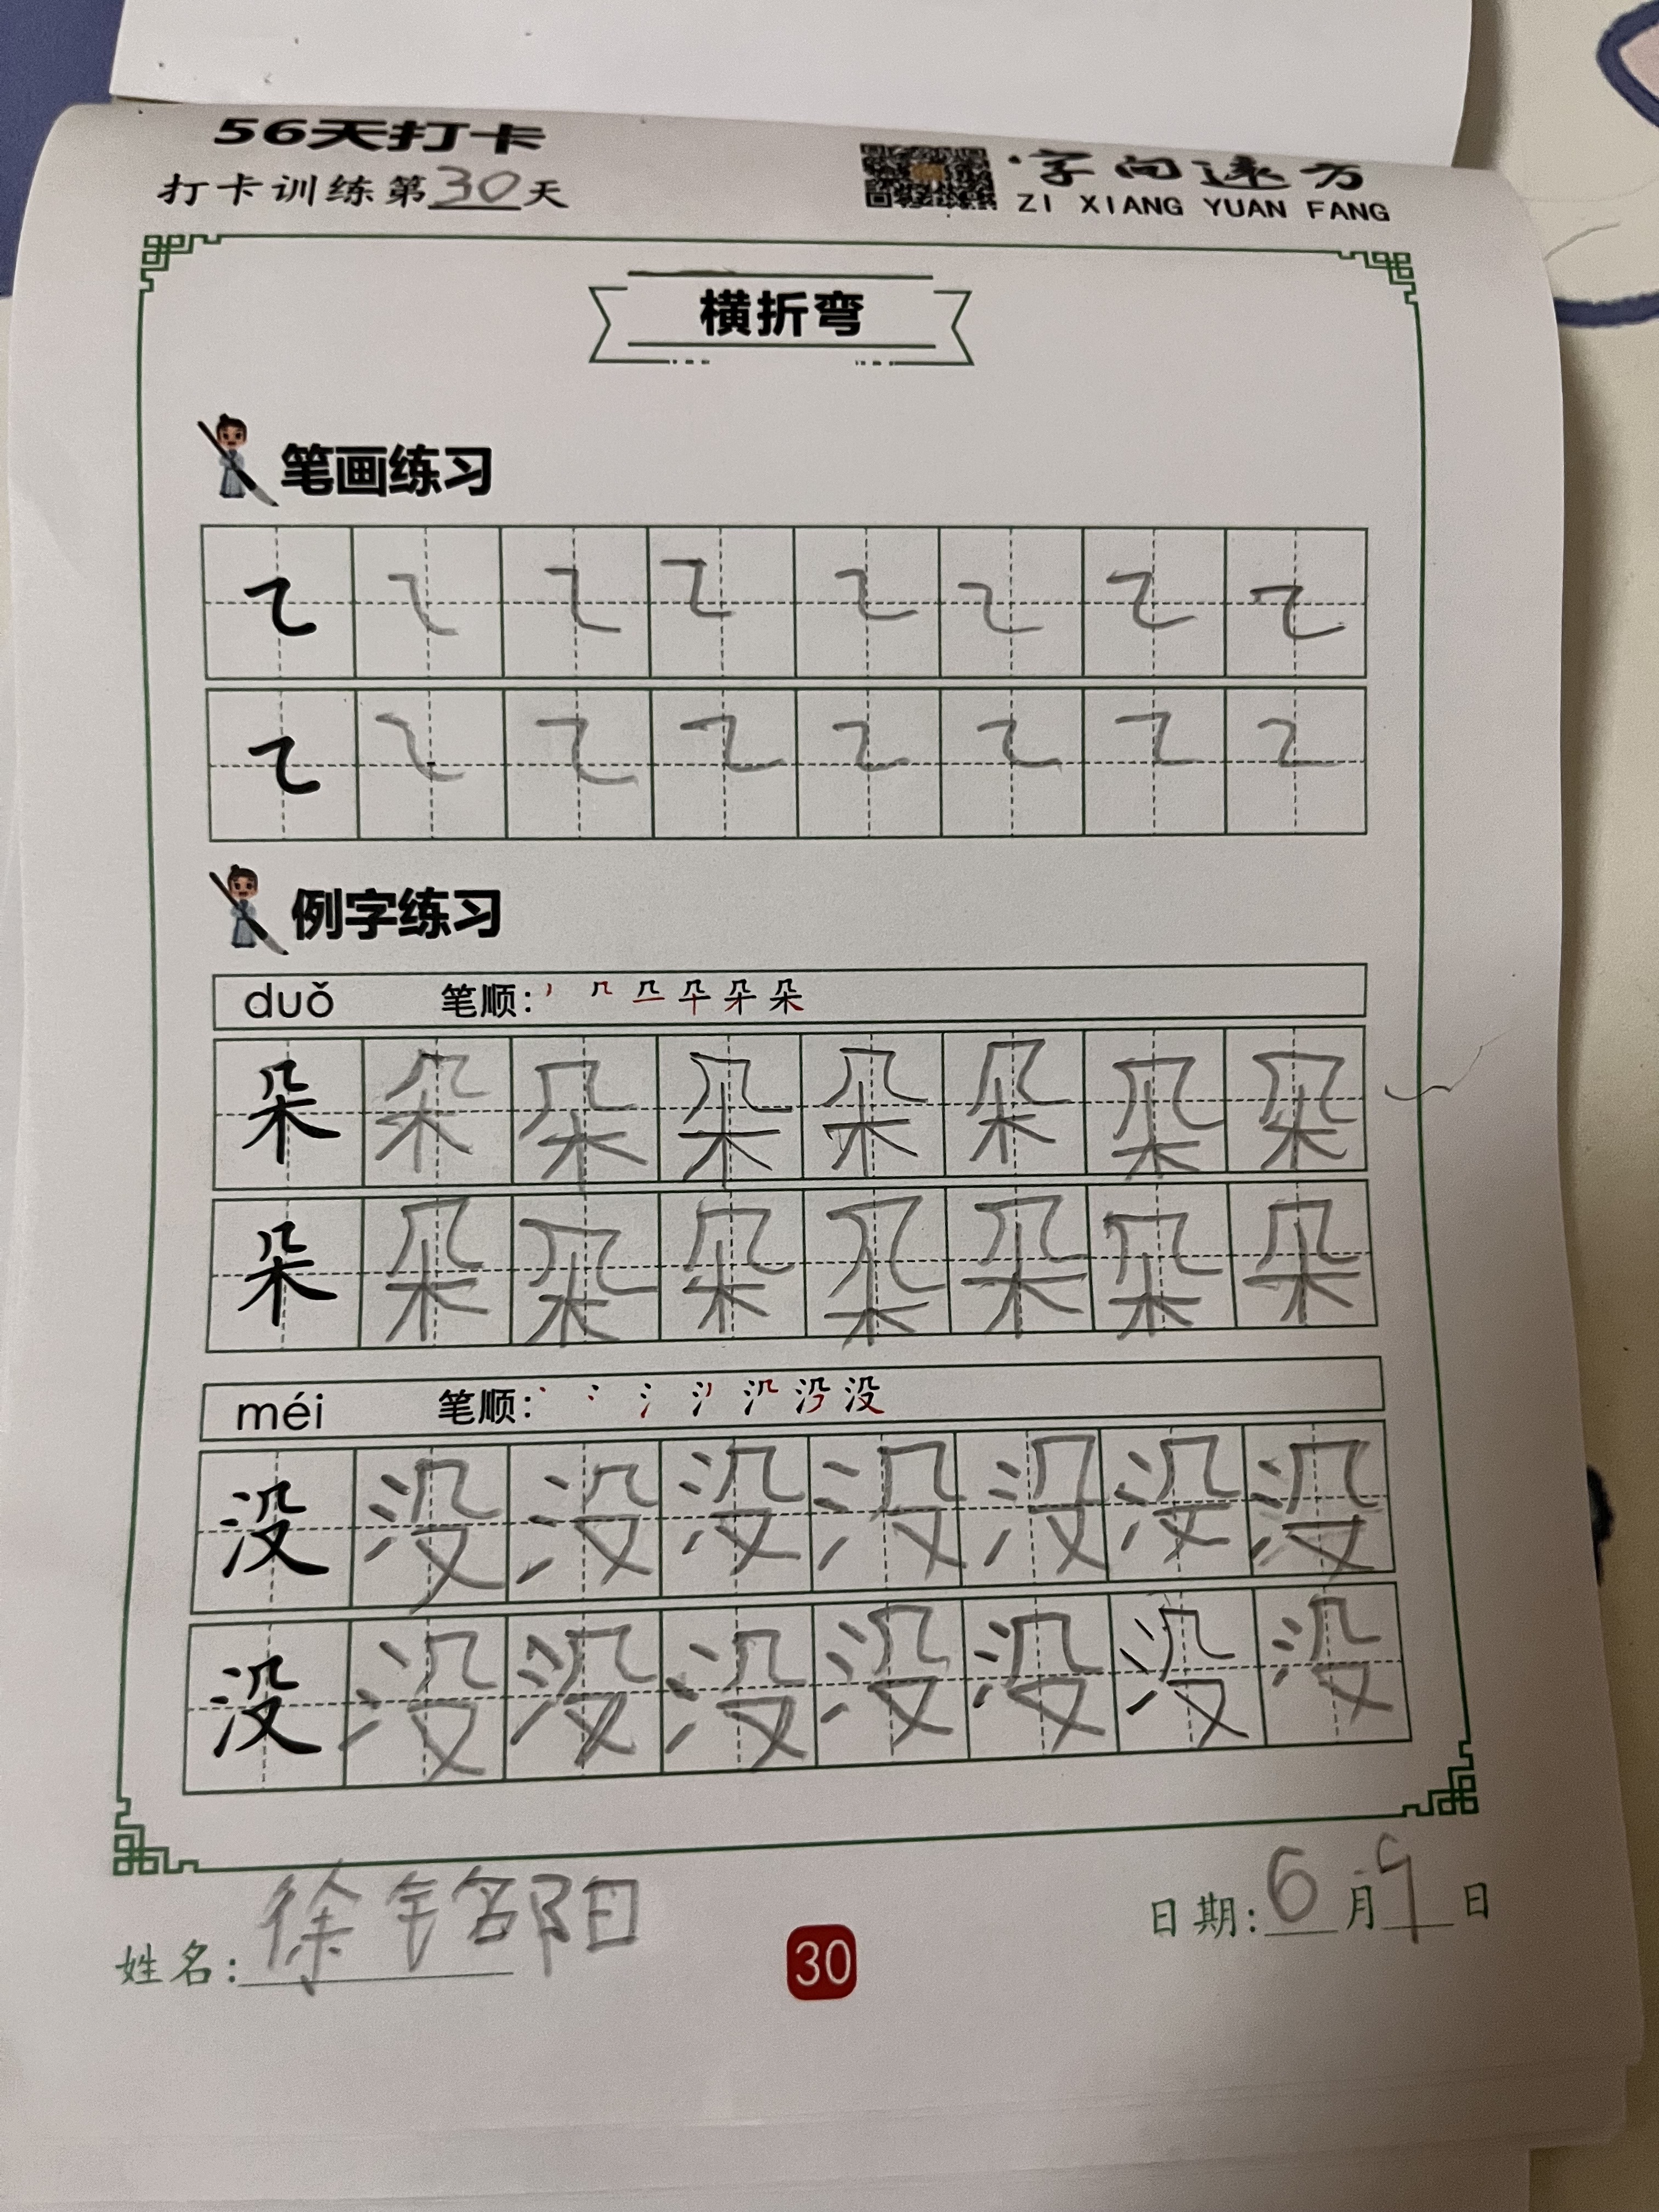 56天打卡
打卡训练第30天
字向远方
ZI XIANG YUAN FANG
横折弯
笔画练习
例字练习
duǒ 笔顺：
朵 朵 朵 朵 朵 朵 朵 朵
朵 朵 朵 朵 朵 朵 朵 朵
méi 笔顺：
没 没 没 没 没 没 没 没
没 没 没 没 没 没 没 没
姓名：徐铭阳
30
日期：6月9日